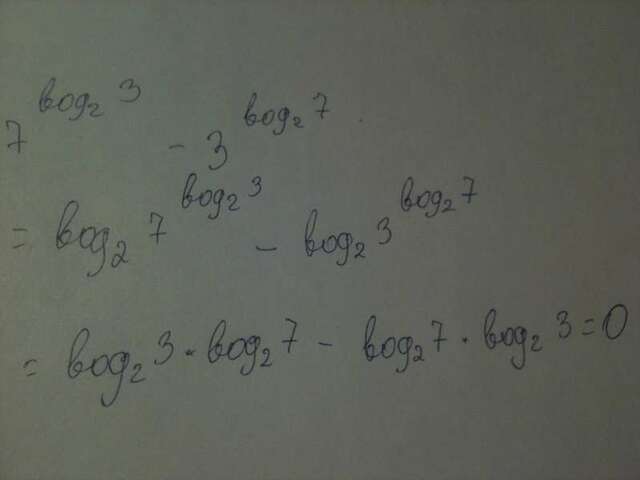 7^{log₂ 3} - 3^{log₂ 7}
= log₂ 7^{log₂ 3} - log₂ 3^{log₂ 7}
= log₂ 3 · log₂ 7 - log₂ 7 · log₂ 3 = 0